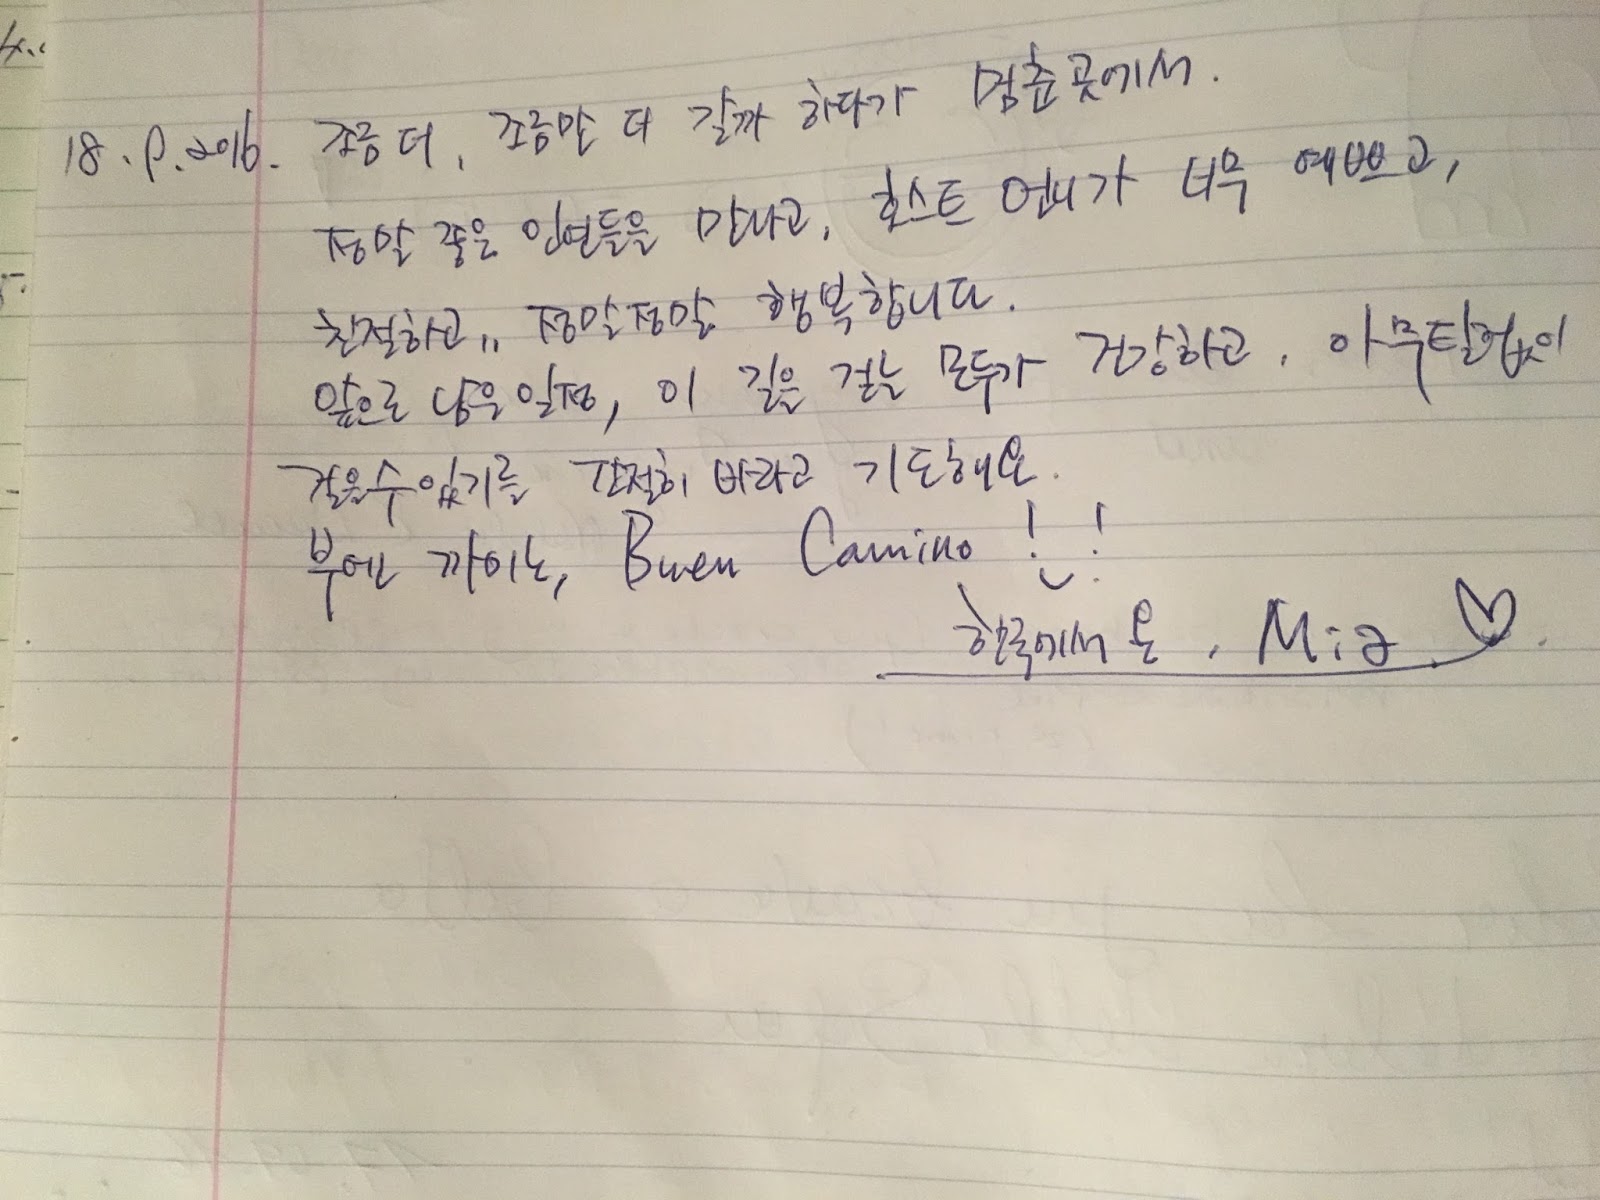 18. 9. 2016. 조금 더, 조금만 더 갈까 하다가 멈춘 곳에서.
정말 좋은 인연들을 만나고, 호스트 언니가 너무 예쁘고,
친절하고,, 정말정말 행복합니다.
앞으로 남은 일정, 이 길을 걷는 모두가 건강하고, 아무탈없이
걸을 수 있기를 간절히 바라고 기도해요.
부엔 까미노, Buen Camino ! !
한국에서 온, Mia ♡.